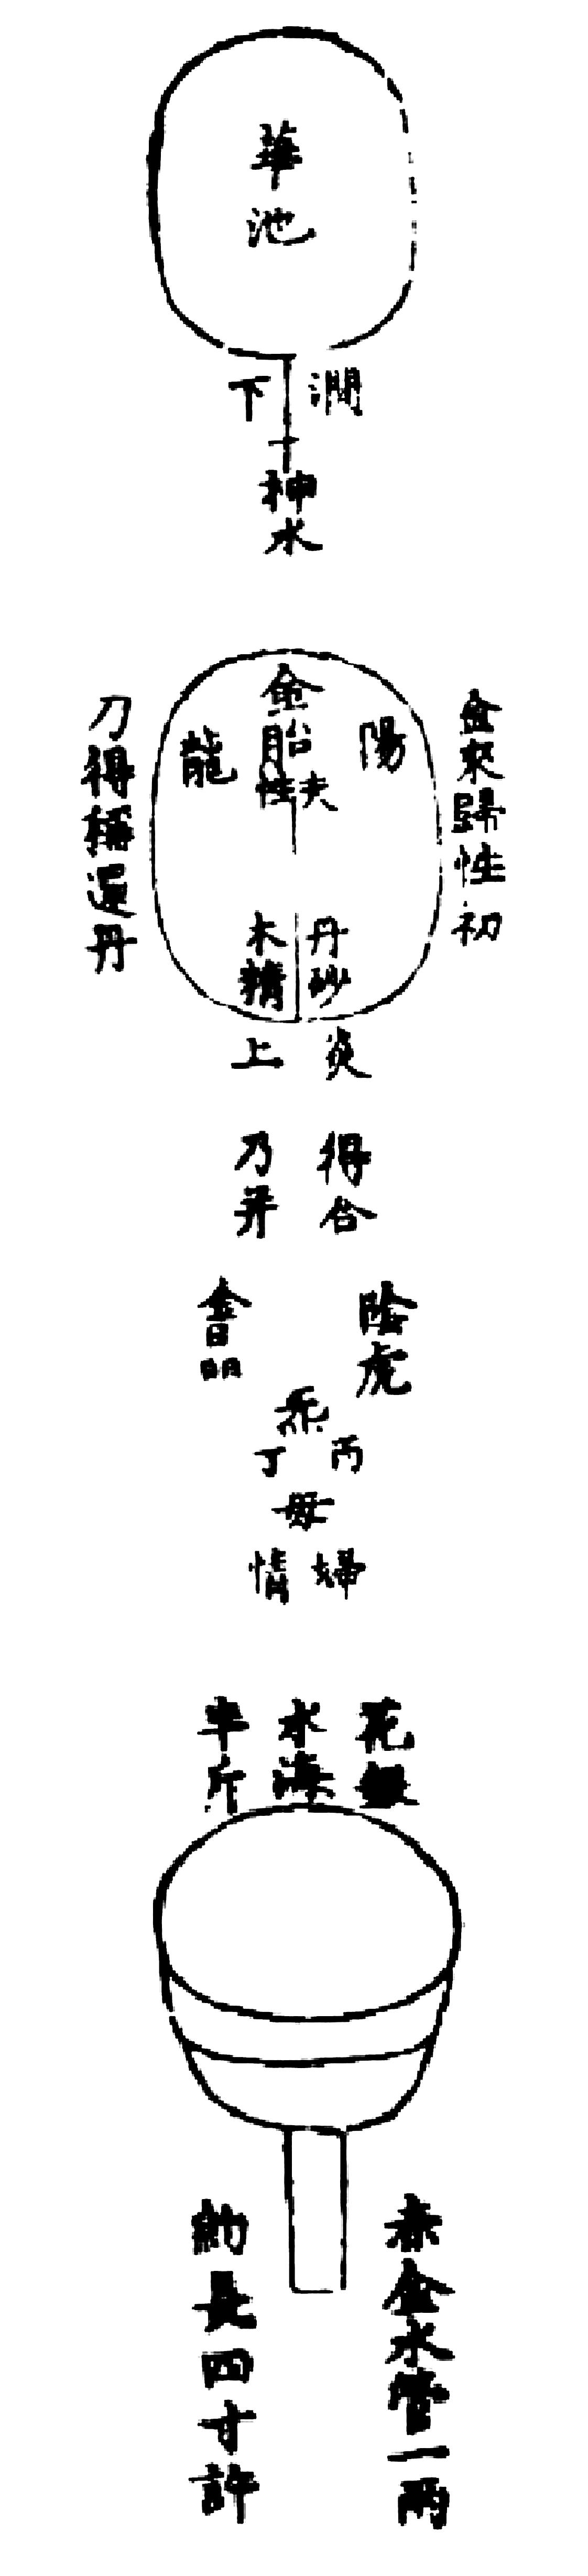 華池
潤下
神水
金來歸性初
陽龍
金胎
夫性
丹砂
木精
刀得稱還丹
炎上
得合
乃并
陰虎
炁
丙丁
母
婦情
花銀
水海
半斤
赤金水管一兩
約長四寸許